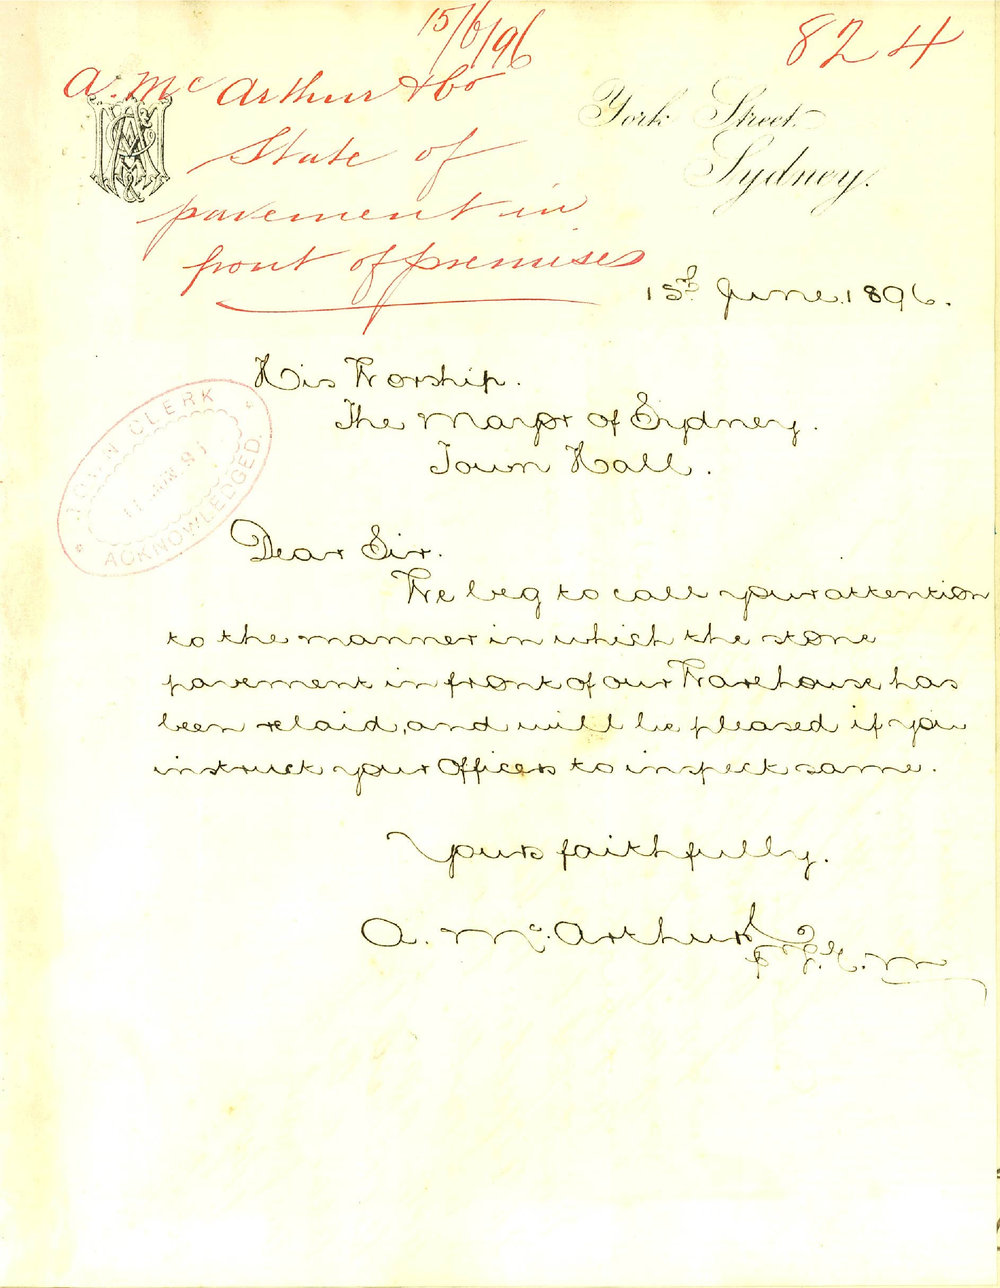 15/6/96
824
A. McArthur & Co
State of
pavement in
front of premises
York Street
Sydney.
15th June 1896.
His Worship.
The Mayor of Sydney.
Town Hall.
TOWN CLERK
ACKNOWLEDGED.
Dear Sir.
We beg to call your attention
to the manner in which the stone
pavement in front of our Warehouse has
been relaid, and will be pleased if you
instruct your Officers to inspect same.
Yours faithfully.
A. McArthur